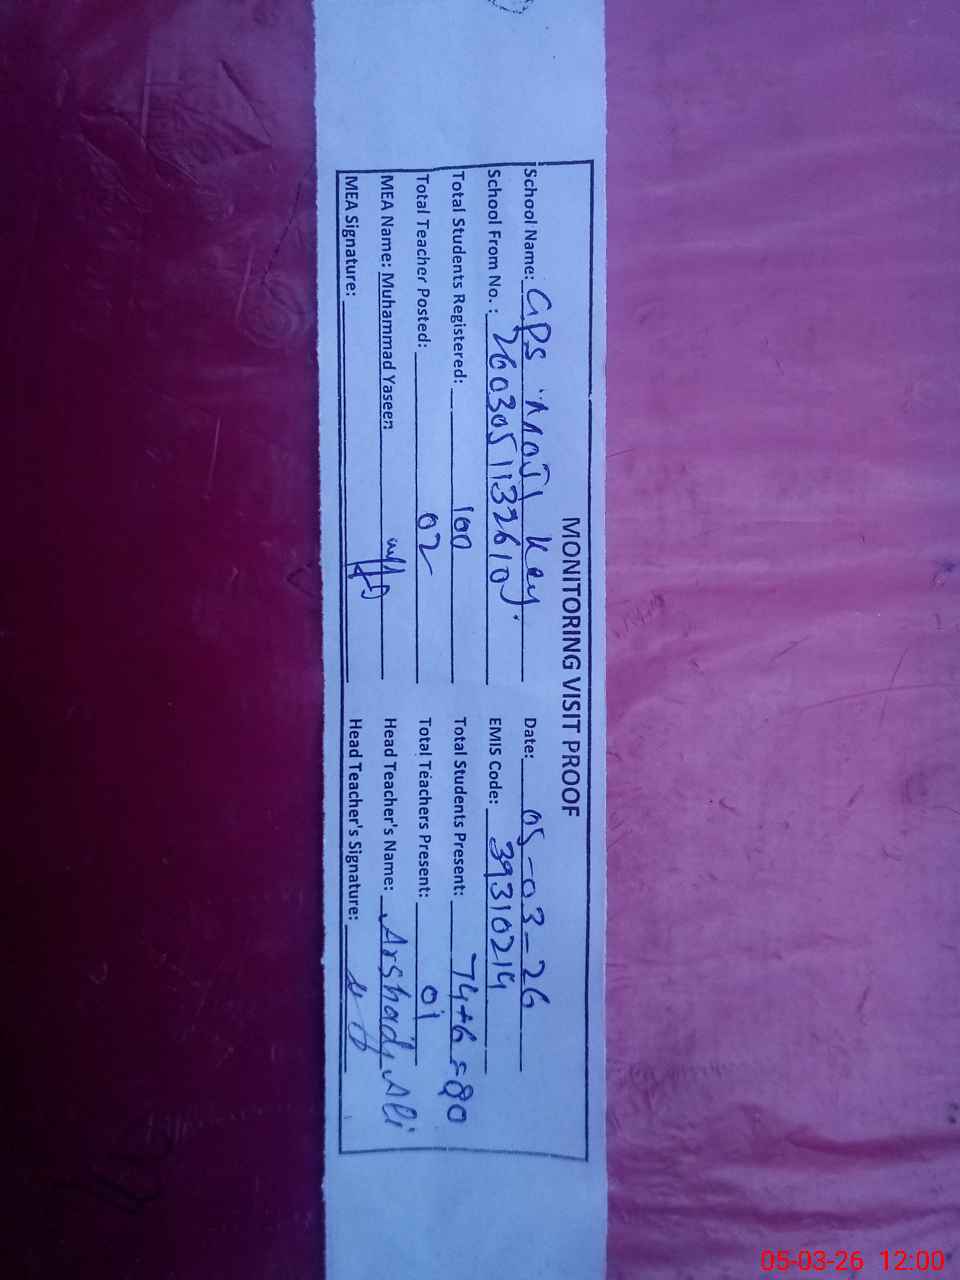 MONITORING VISIT PROOF
School Name: GPS Moji Key. Date: 05-03-26
School From No.: 2603051132610 EMIS Code: 39310214
Total Students Registered: 100 Total Students Present: 74+6=80
Total Teacher Posted: 02 Total Teachers Present: 01
MEA Name: Muhammad Yaseen Head Teacher's Name: Arshad Ali
MEA Signature: Head Teacher's Signature:
05-03-26 12:00